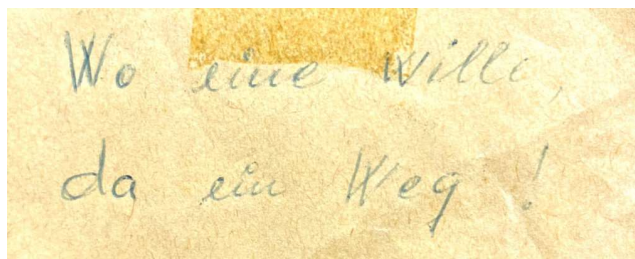 Wo eine Wille,
da ein Weg!